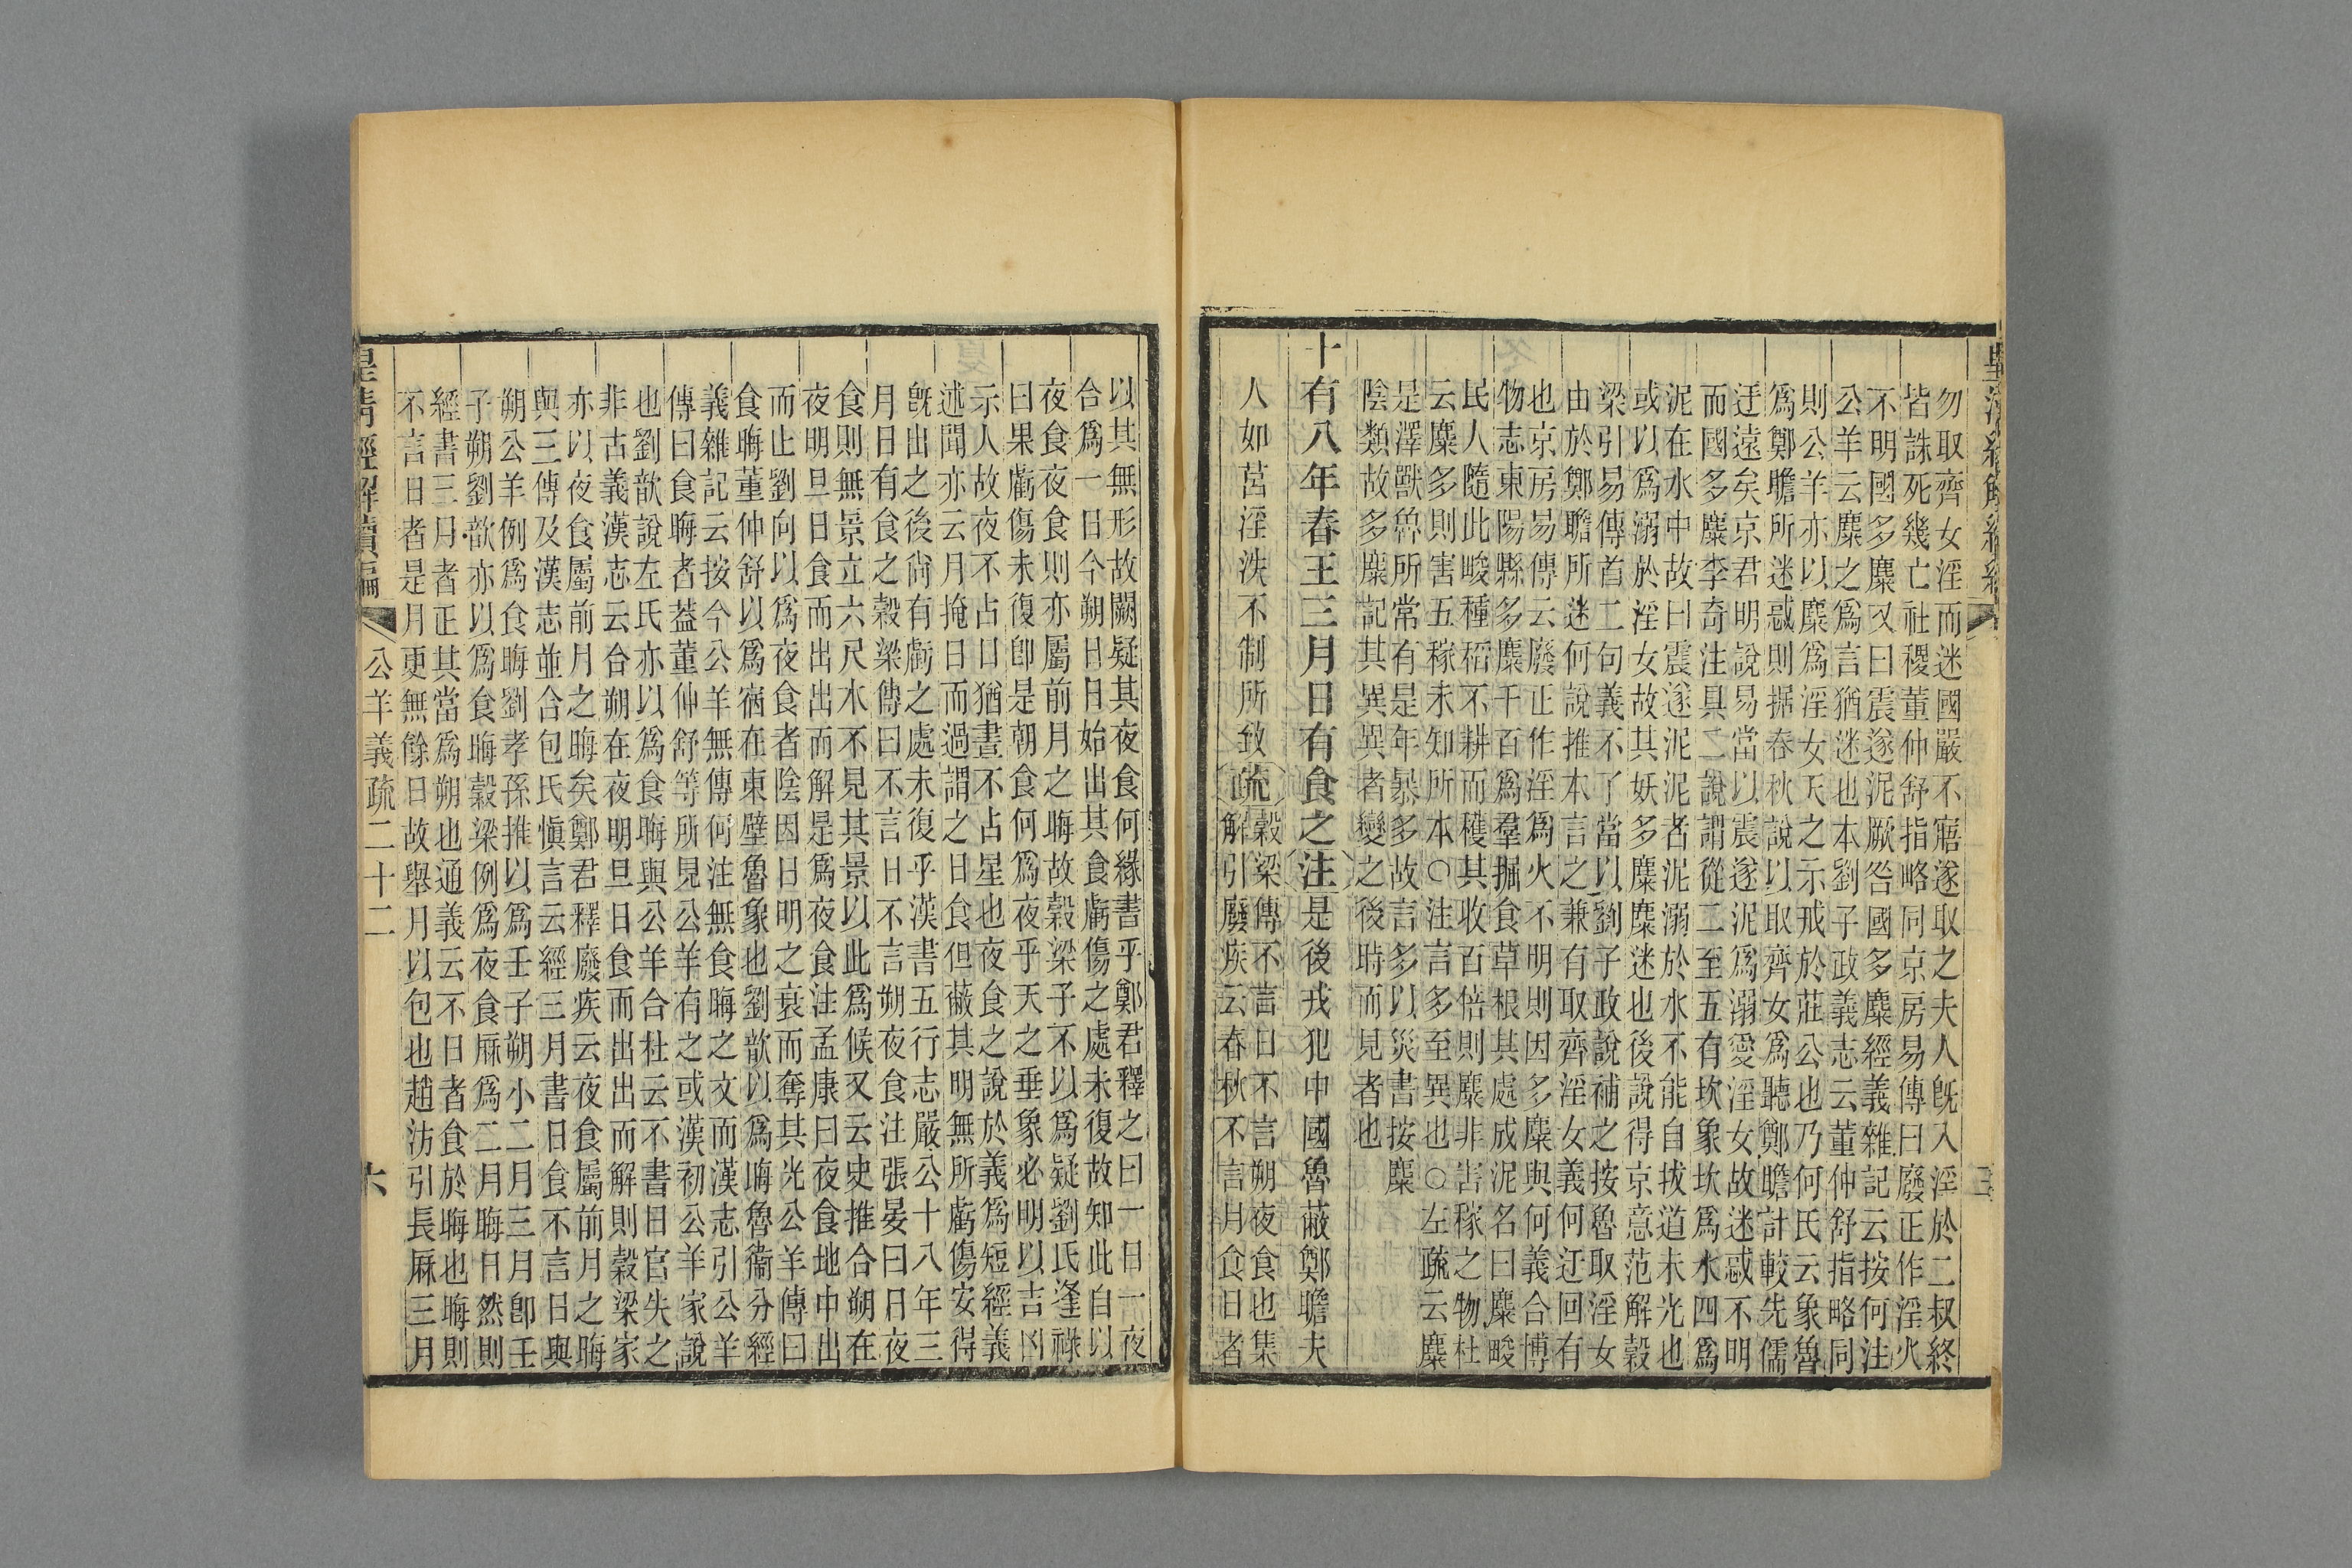 勿取齊女淫而迷國嚴不寤遂取之夫人既入淫於二叔終
皆誅死幾亡社稷董仲舒指略同京房易傳曰廢正作淫火
不明國多麋又曰震遂泥厥咎國多麋經義雜記云按何注
公羊云麋之爲言猶迷也本劉子政義志云董仲舒指略同
則公羊亦以麋爲淫女天之示戒於莊公也乃何氏云象魯
爲鄭瞻所迷惑則據春秋說以取齊女爲聽鄭瞻計較先儒
迂遠矣京君明說易當以震遂泥爲溺愛淫女故迷惑不明
而國多麋李奇注具二說謂從二至五有坎象坎爲水四爲
泥在水中故曰震遂泥泥者泥溺於水不能自拔道未光也
或以爲溺於淫女故其妖多麋麋迷也後說得京意范解穀
梁引易傳首二句義不了當以劉子政說補之按魯取淫女
由於鄭瞻所迷何說推本言之兼有取齊淫女義何迂回有
也京房易傳云廢正作淫爲火不明則因多麋與何義合博
物志東陽縣多麋千百爲羣掘食草根其處成泥名曰麋畯
民人隨此畯種稻不耕而穫其收百倍則麋非害稼之物杜
云麋多則害五稼未知所本○注言多至異也○左疏云麋
是澤獸魯所常有是年暴多故言多以災書按麋
陰類故多麋記其異異者變之後時而見者也
十有八年春王三月日有食之注是後戎犯中國魯蔽鄭瞻夫
人如莒淫泆不制所致疏穀梁傳不言日不言朔夜食也集
解引廢疾云春秋不言月食日者
以其無形故闕疑其夜食何緣書乎鄭君釋之曰一日一夜
合爲一日今朔日日始出其食虧傷之處未復故知此自以
夜食夜食則亦屬前月之晦故穀梁子不以爲疑劉氏逢祿
曰果虧傷未復卽是朝食何爲夜乎天之垂象必明以吉凶
示人故夜不占日猶晝不占星也夜食之說於義爲短經義
述聞亦云月掩日而過謂之日食但蔽其明無所虧傷安得
既出之後尙有虧之處未復乎漢書五行志嚴公十八年三
月日有食之穀梁傳曰不言日不言朔夜食注張晏曰日夜
食則無景立六尺木不見其景以此爲候又云史推合朔在
夜明旦日食而出出而解是爲夜食注孟康曰夜食地中出
而止劉向以爲夜食者陰因日明之衰而奪其光公羊傳曰
食晦董仲舒以爲宿在東壁魯象也劉歆以爲晦魯衞分經
義雜記云按今公羊無傳何注無食晦之文而漢志引公羊
傳曰食晦者蓋董仲舒等所見公羊有之或漢初公羊家說
也劉歆說左氏亦以爲食晦與公羊合杜云不書日官失之
非古義漢志云合朔在夜明旦日食而出出而解則穀梁家
亦以夜食屬前月之晦矣鄭君釋廢疾云夜食屬前月之晦
與三傳及漢志並合包氏愼言云經三月書日食不言日與
朔公羊例爲食晦劉孝孫推以爲壬子朔小二月三月卽壬
子朔劉歆亦以爲食晦穀梁例爲夜食厤爲二月晦日然則
經書三月者正其當爲朔也通義云不日者食於晦也晦則
不言日者是月更無餘日故舉月以包也趙汸引長厤三月
皇清經解續編
公羊義疏二十二
六